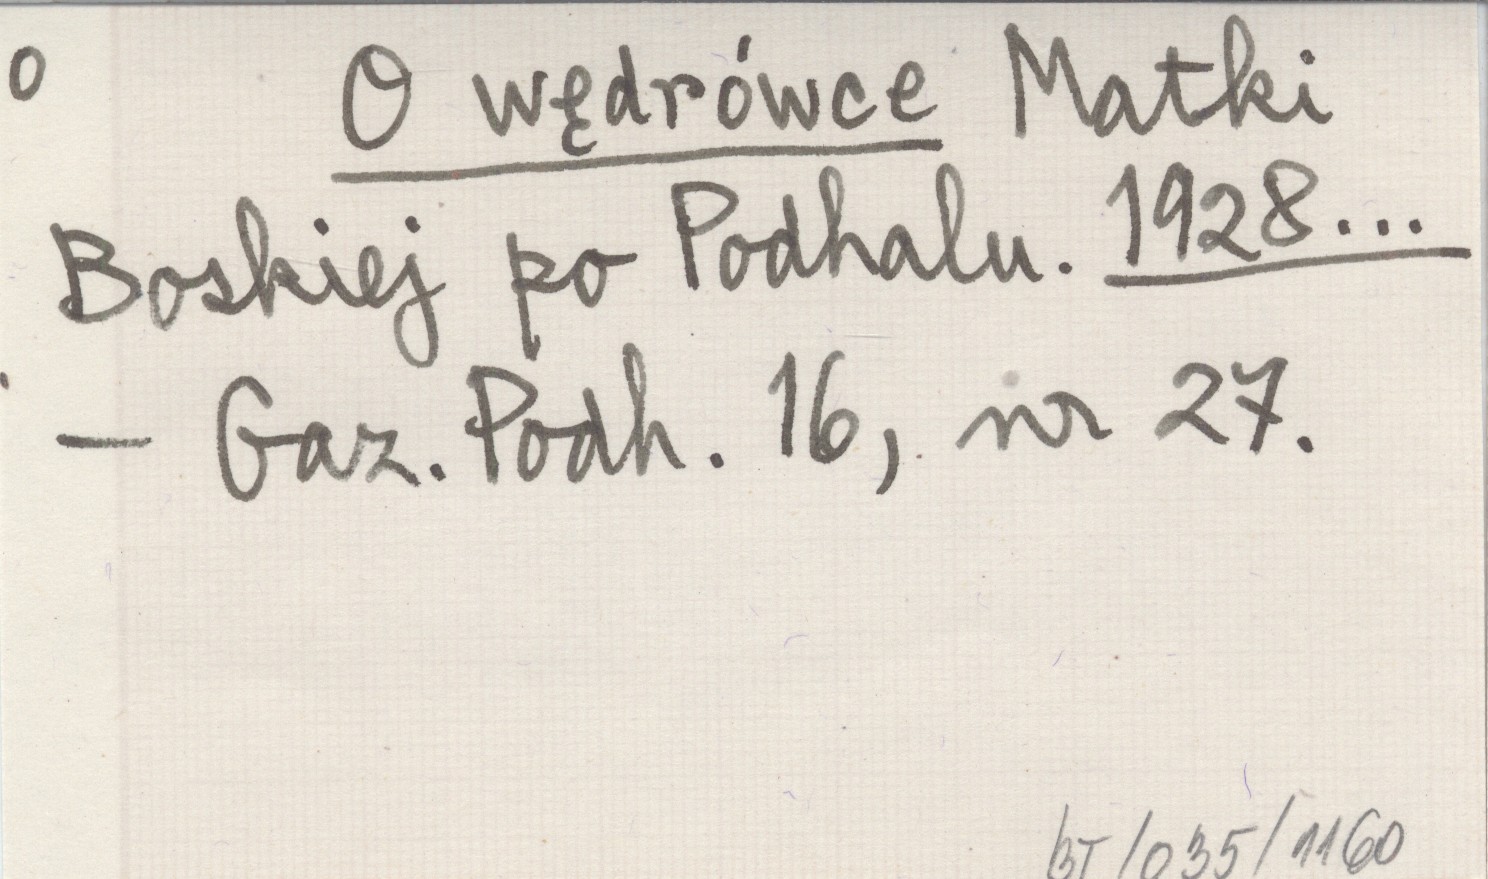 O
O wędrówce Matki
Boskiej po Podhalu. 1928...
— Gaz. Podh. 16, nr 27.
BT/035/1160